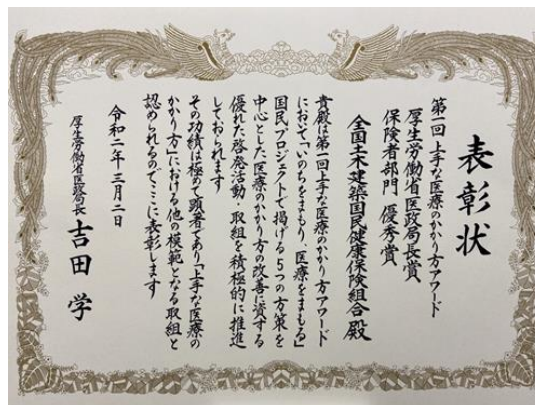 表彰状
第一回 上手な医療のかかり方アワード
厚生労働省医政局長賞
保険者部門 優秀賞
全国土木建築国民健康保険組合 殿
貴殿は第一回上手な医療のかかり方アワード
において「いのちをまもり、医療をまもる」
国民プロジェクトで掲げる5つの方策を
中心とした医療のかかり方の改善に資する
優れた啓発活動・取組を積極的に推進
しておられます
その功績は極めて顕著であり「上手な医療の
かかり方」における他の模範となる取組と
認められるのでここに表彰します
令和二年三月二日
厚生労働省医政局長 吉田 学